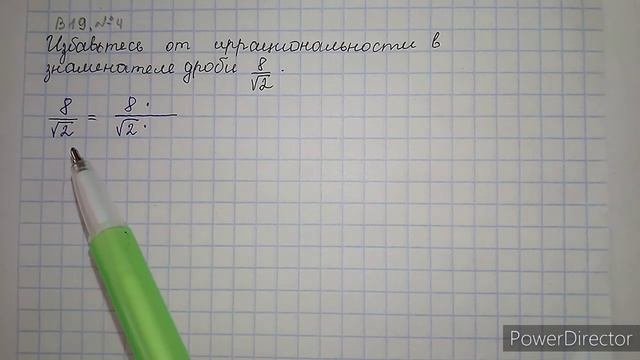 В19, №4
Избавьтесь от иррациональности в
знаменателе дроби 8/√2.
8/√2 = 8·/√2·
PowerDirector